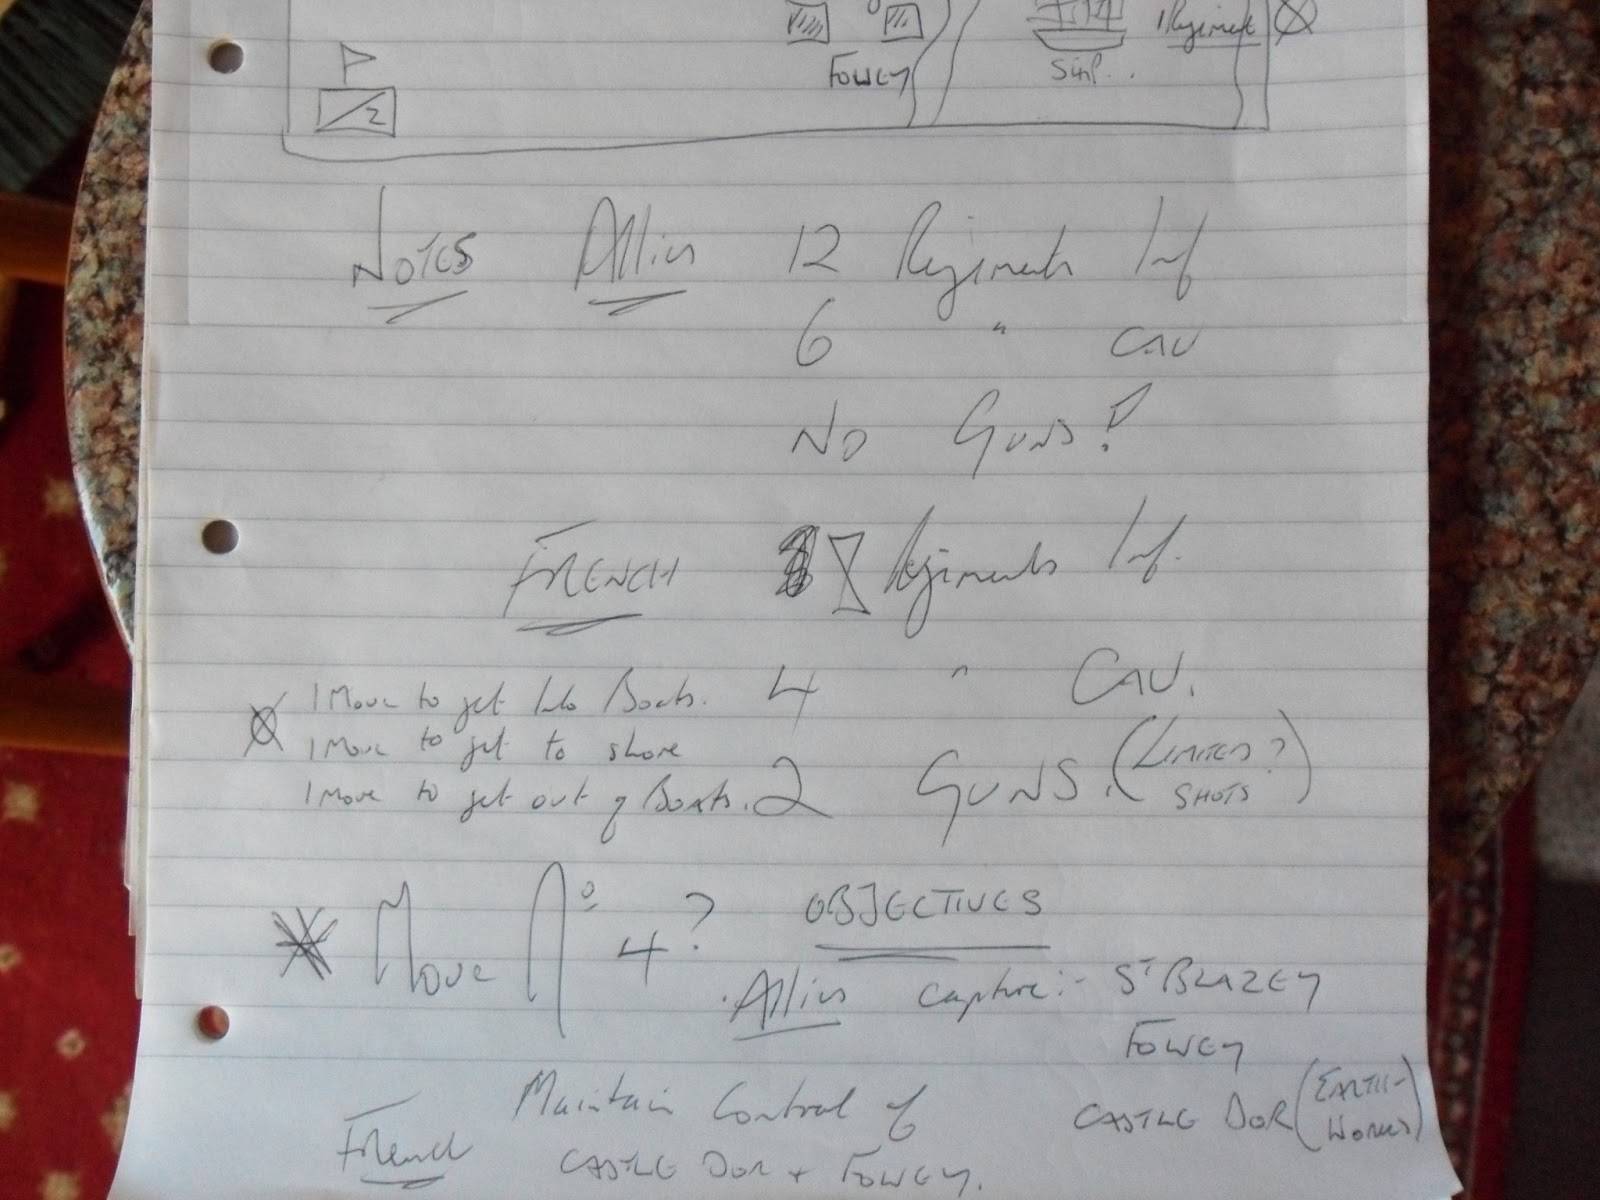 1 Regiment
Fowey
Ship..
2
Notes Allies 12 Regiments Inf
6 " Cav
No Guns?
French Regiments Inf.
4 " Cav.
1 Move to get into Boats.
1 Move to get to shore
1 Move to get out of Boats.
2 Guns. (Limited? Shots)
Move No 4?
OBJECTIVES
Allies capture:- St Blazey
Fowey
Castle Dor (Earth-
Works)
French Maintain Control of
Castle Dor + Fowey.